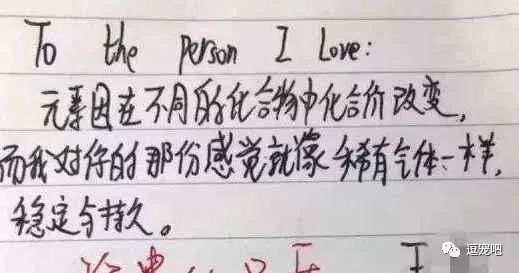 To the person I Love:
元素因在不同的化合物中化合价改变,
而我对你的那份感觉就像稀有气体一样,
稳定与持久。
逗宠吧